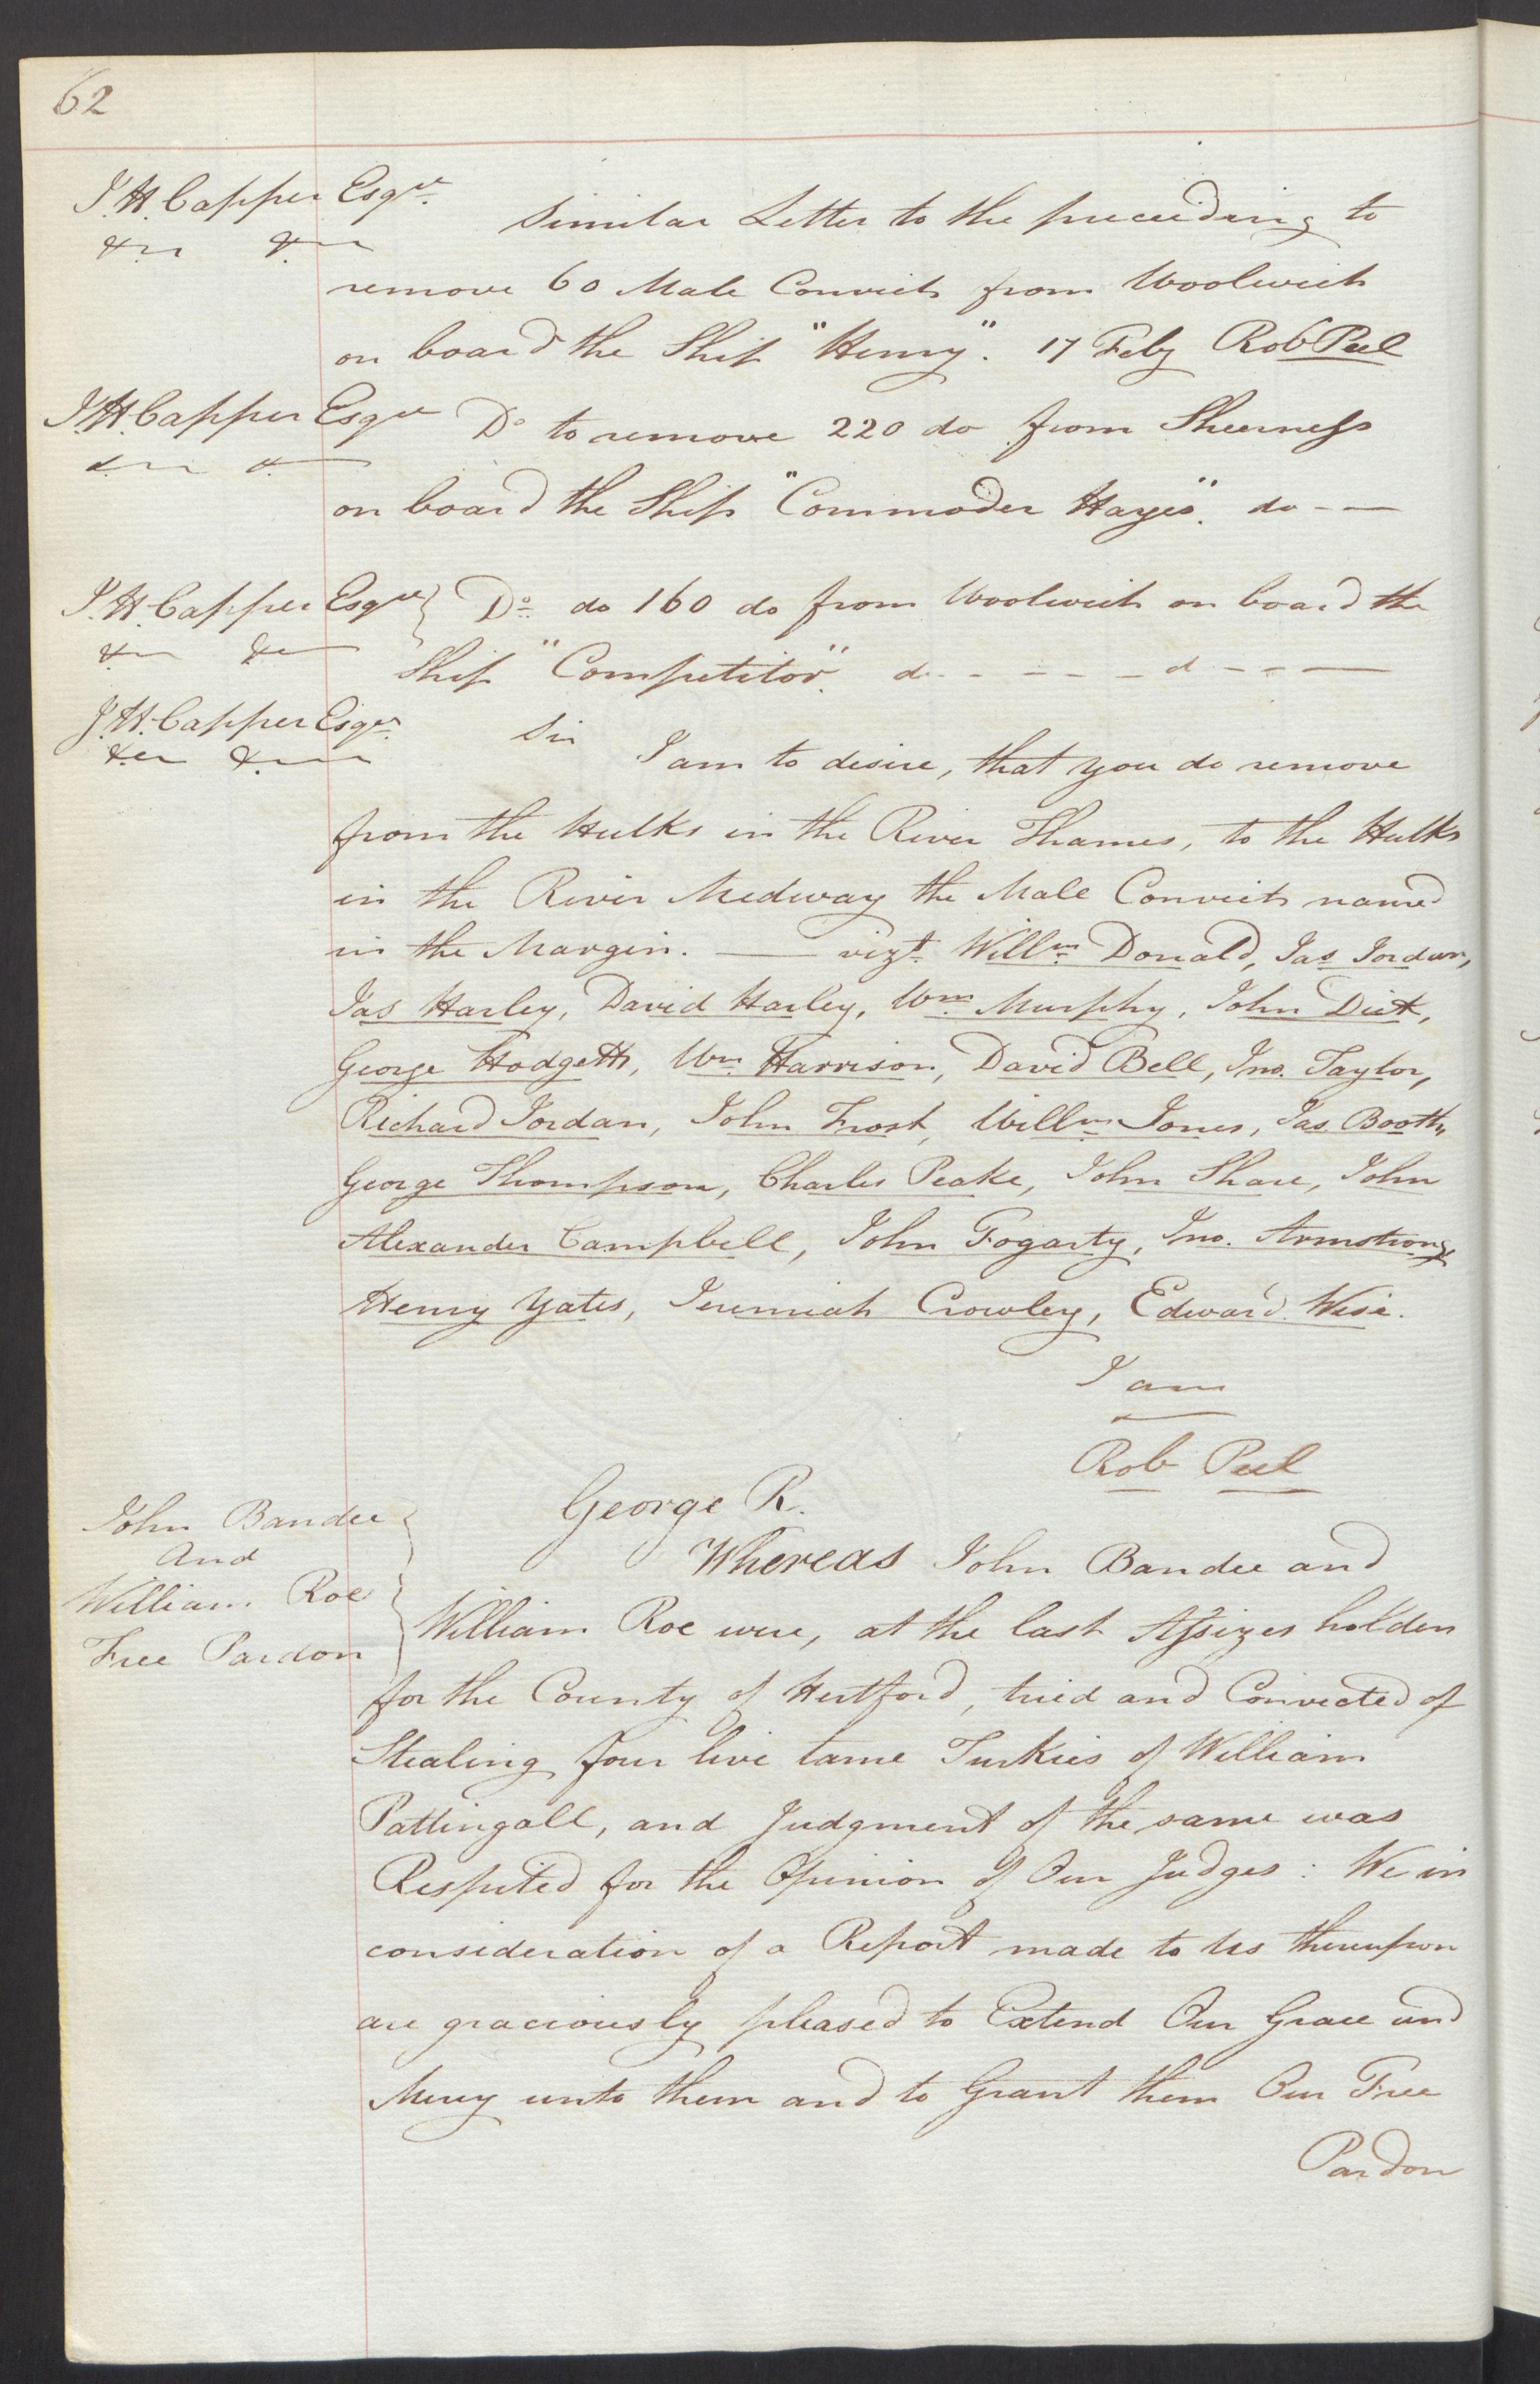 62
J. H. Capper Esqre.
&c &c
Similar Letter to the preceeding to
remove 60 Male Convicts from Woolwich
on board the Ship "Henry". 17 Feby Rob Peel
J. H. Capper Esqre
&c &c
Do to remove 220 do from Sheerness
on board the Ship "Commoder Hayes". do - -
J. H. Capper Esqre
&c &c
Do do 160 do from Woolwich on board the
Ship "Competitor". d - - - - d - - -
J. H. Capper Esqre.
&c &c
Sir
I am to desire, that you do remove
from the Hulks in the River Thames, to the Hulks
in the River Medway the Male Convicts named
in the Margin. — vizt. Willm Donald, Jas Jordan,
Jas Harley, David Harley, Wm. Murphy, John Diet,
George Hodgetts, Wm. Harrison, David Bell, Jno. Taylor,
Richard Jordan, John Frost, Willm Jones, Jas Booth,
George Thompson, Charles Peake, John Share, John
Alexander Campbell, John Fogarty, Jno. Armstrong,
Henry Yates, Jeremiah Crowley, Edward Wise.
I am
Rob Peel
John Bandee
And
William Roe
Free Pardon
George R.
Whereas John Bandee and
William Roe were, at the last Assizes holden
for the County of Hertford, tried and Convicted of
Stealing four live tame Turkies of William
Pattingall, and Judgment of the same was
Respited for the Opinion of Our Judges: We in
consideration of a Report made to Us thereupon
are graciously pleased to Extend Our Grace and
Mercy unto them and to Grant them Our Free
Pardon